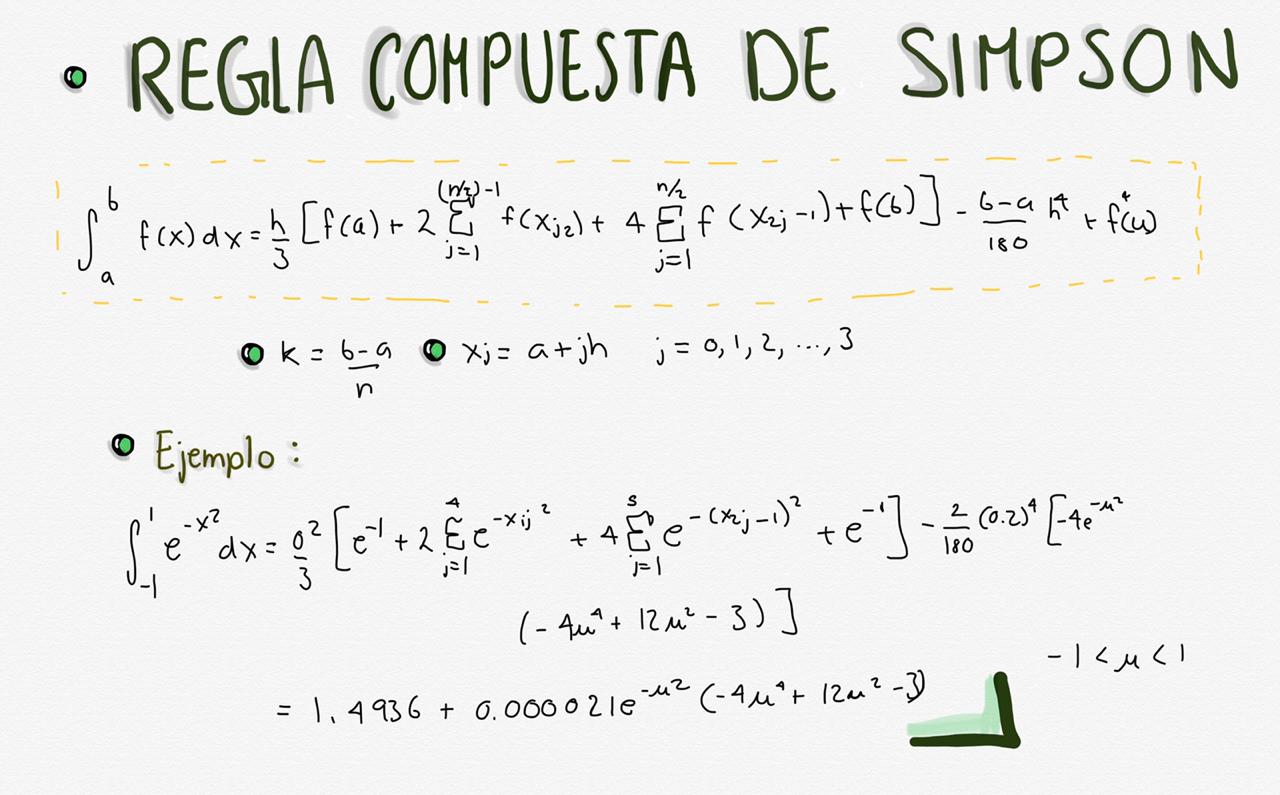 • REGLA COMPUESTA DE SIMPSON
∫_a^b f(x) dx = h/3 [f(a) + 2 Σ_{j=1}^{(n/2)-1} f(x_{j2}) + 4 Σ_{j=1}^{n/2} f(x_{2j-1}) + f(b)] - (b-a)/180 h^4 + f^4(u)
• k = (b-a)/n • xj = a + jh j = 0, 1, 2, ..., 3
• Ejemplo:
∫_{-1}^1 e^{-x^2} dx = 0^2/3 [e^{-1} + 2 Σ_{j=1}^4 e^{-xij^2} + 4 Σ_{j=1}^s e^{-(x2j-1)^2} + e^{-1}] - 2/180 (0.2)^4 [-4e^{-μ^2}
(-4μ^4 + 12μ^2 - 3)]
-1 < μ < 1
= 1.4936 + 0.000021e^{-μ^2} (-4μ^4 + 12μ^2 - 3)